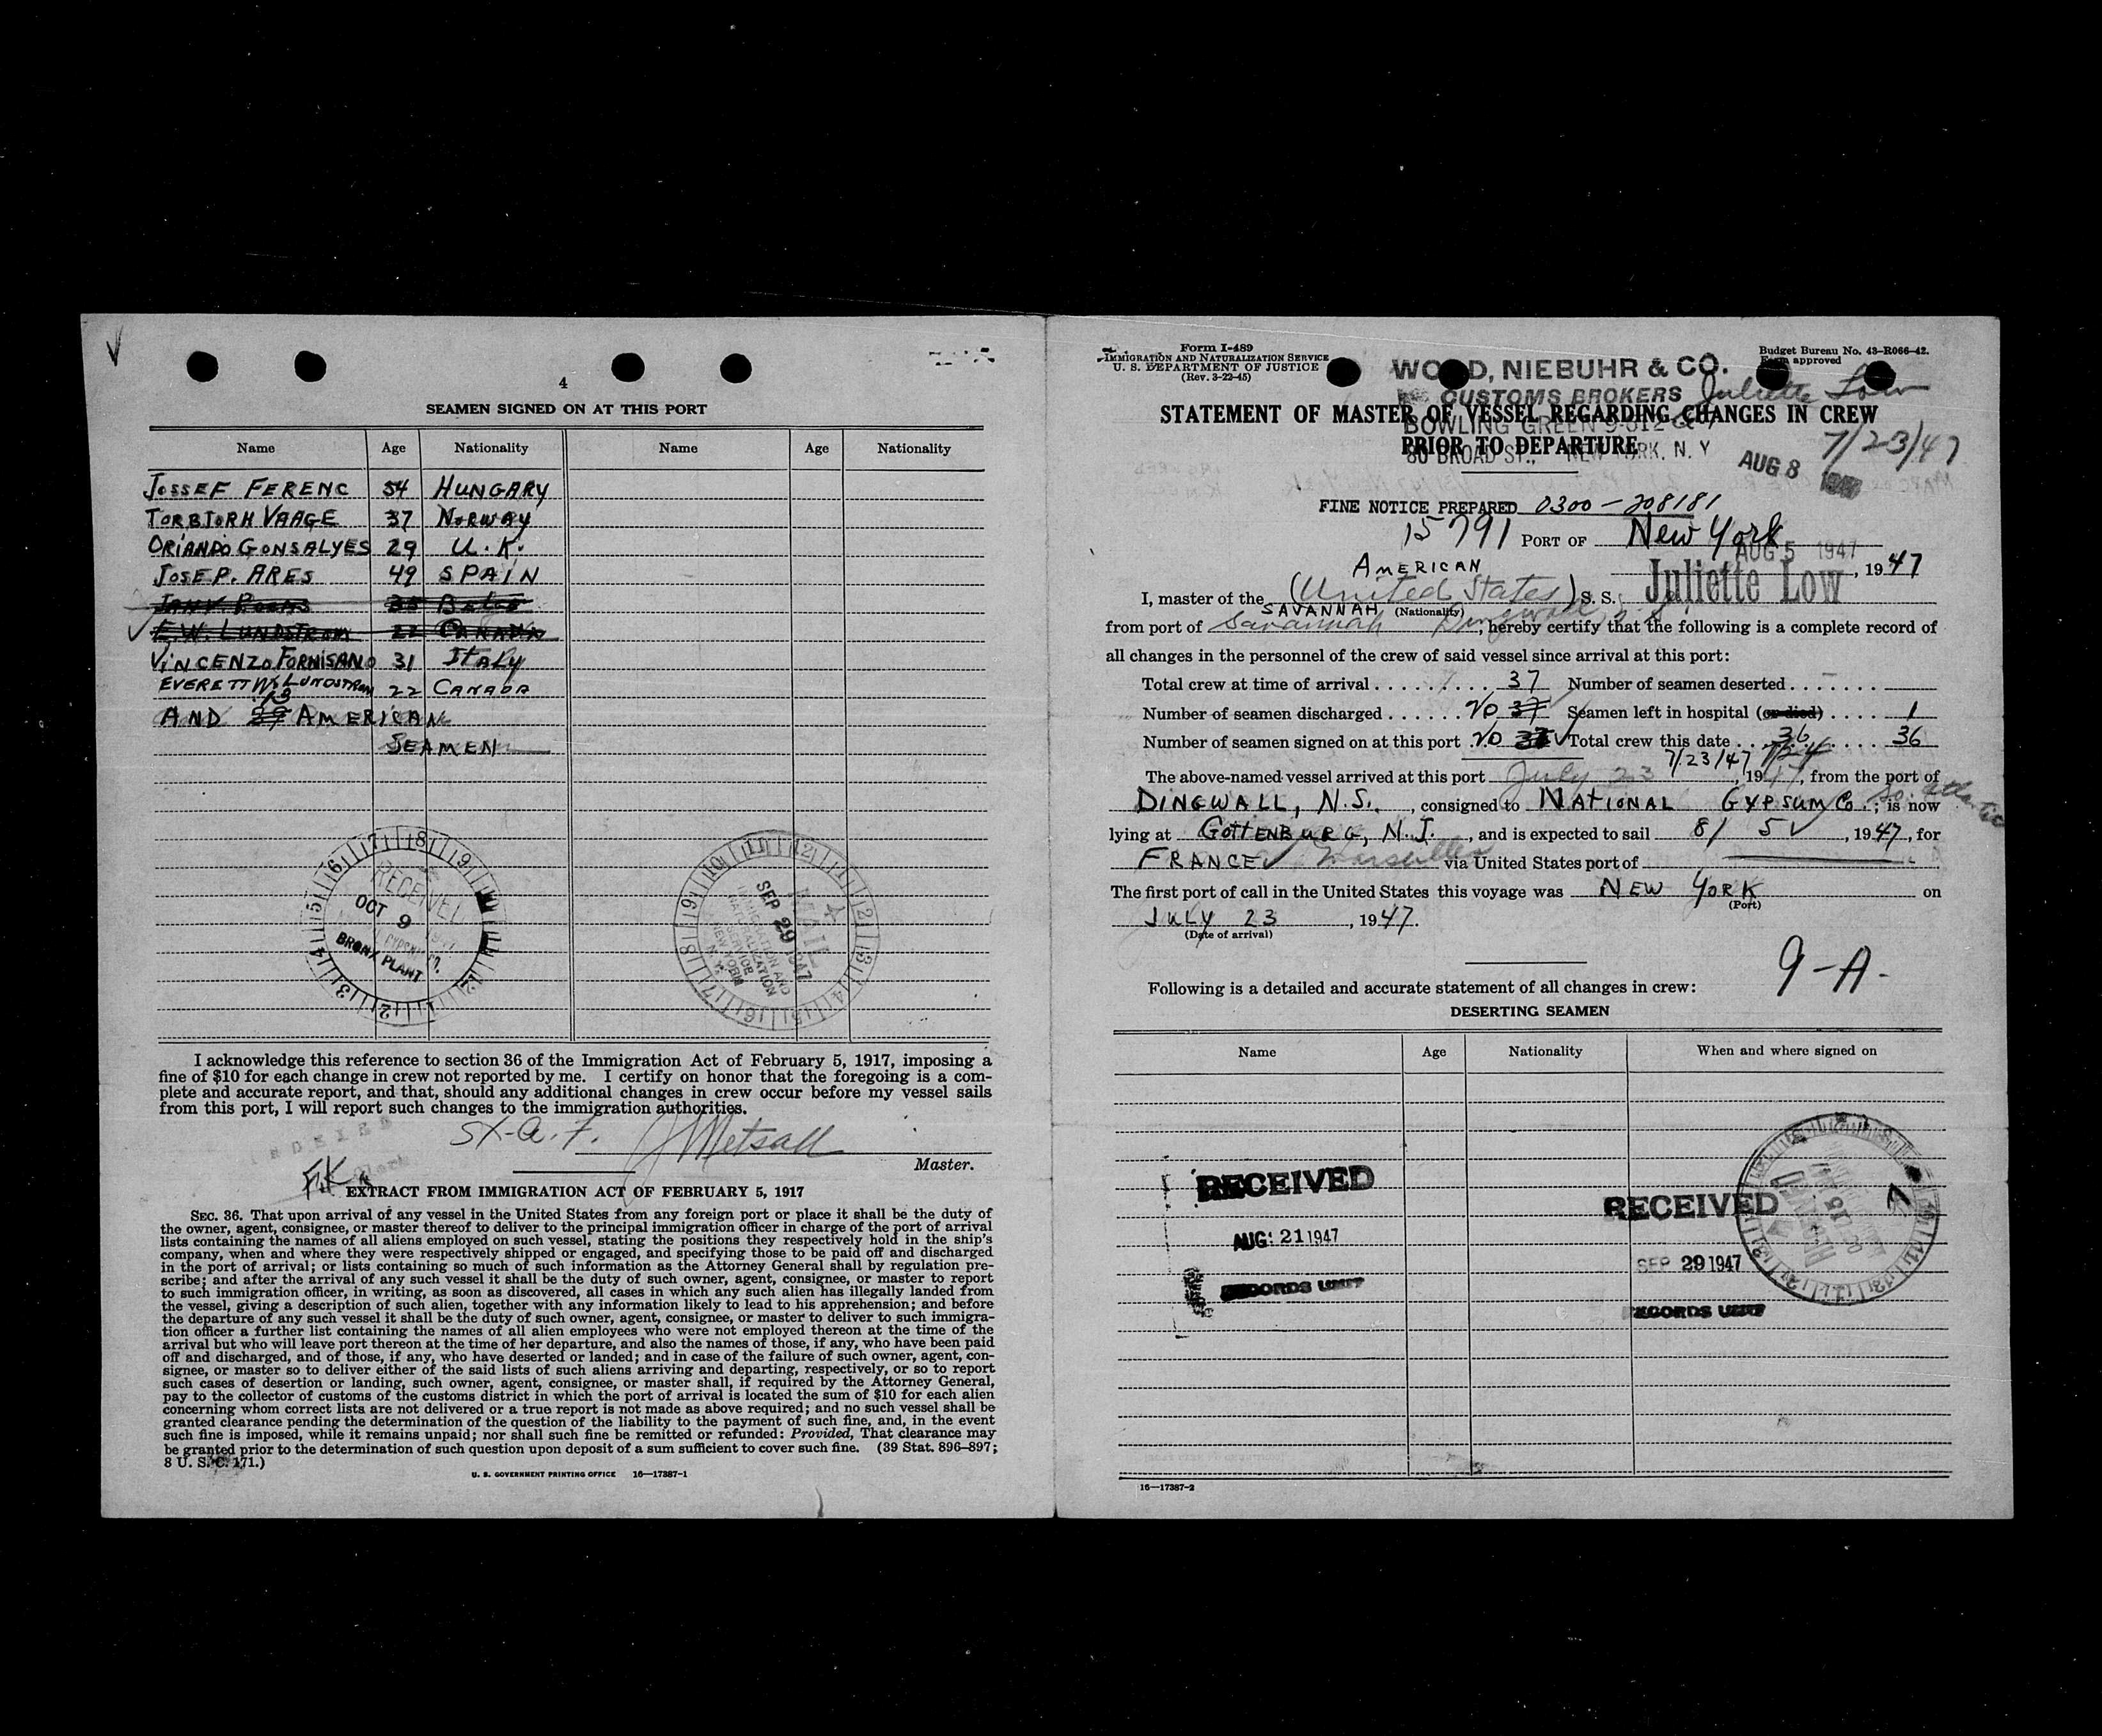 4
SEAMEN SIGNED ON AT THIS PORT
Name Age Nationality Name Age Nationality
JOSSEF FERENC 54 HUNGARY
TORBJORH VAAGE 37 NORWAY
ORIANDO GONSALYES 29 U.K.
JOSE P. ARES 49 SPAIN
E.W. LUNDSTROM 22 CANADA
VINCENZO FORNISANO 31 ITALY
EVERETT W. LUNDSTROM 22 CANADA
AND 13 AMERICAN
SEAMEN
RECEIVED
OCT 9
BRONX PLANT
MAIL
SEP 29 1947
IMMIGRATION AND
NATURALIZATION
SERVICE
NEW YORK
N. Y.
I acknowledge this reference to section 36 of the Immigration Act of February 5, 1917, imposing a
fine of $10 for each change in crew not reported by me. I certify on honor that the foregoing is a com-
plete and accurate report, and that, should any additional changes in crew occur before my vessel sails
from this port, I will report such changes to the immigration authorities.
J Metsall
Master.
INDEXED
F.K.
EXTRACT FROM IMMIGRATION ACT OF FEBRUARY 5, 1917
SEC. 36. That upon arrival of any vessel in the United States from any foreign port or place it shall be the duty of
the owner, agent, consignee, or master thereof to deliver to the principal immigration officer in charge of the port of arrival
lists containing the names of all aliens employed on such vessel, stating the positions they respectively hold in the ship's
company, when and where they were respectively shipped or engaged, and specifying those to be paid off and discharged
in the port of arrival; or lists containing so much of such information as the Attorney General shall by regulation pre-
scribe; and after the arrival of any such vessel it shall be the duty of such owner, agent, consignee, or master to report
to such immigration officer, in writing, as soon as discovered, all cases in which any such alien has illegally landed from
the vessel, giving a description of such alien, together with any information likely to lead to his apprehension; and before
the departure of any such vessel it shall be the duty of such owner, agent, consignee, or master to deliver to such immigra-
tion officer a further list containing the names of all alien employees who were not employed thereon at the time of the
arrival but who will leave port thereon at the time of her departure, and also the names of those, if any, who have been paid
off and discharged, and of those, if any, who have deserted or landed; and in case of the failure of such owner, agent, con-
signee, or master so to deliver either of the said lists of such aliens arriving and departing, respectively, or so to report
such cases of desertion or landing, such owner, agent, consignee, or master shall, if required by the Attorney General,
pay to the collector of customs of the customs district in which the port of arrival is located the sum of $10 for each alien
concerning whom correct lists are not delivered or a true report is not made as above required; and no such vessel shall be
granted clearance pending the determination of the question of the liability to the payment of such fine, and, in the event
such fine is imposed, while it remains unpaid; nor shall such fine be remitted or refunded: Provided, That clearance may
be granted prior to the determination of such question upon deposit of a sum sufficient to cover such fine. (39 Stat. 896–897;
8 U. S. C. 171.)
U. S. GOVERNMENT PRINTING OFFICE 16—17387-1
Form I-489
IMMIGRATION AND NATURALIZATION SERVICE
U. S. DEPARTMENT OF JUSTICE
(Rev. 3-22-45)
Budget Bureau No. 43-R066-42.
Form approved
WOOD, NIEBUHR & CO.
CUSTOMS BROKERS
Juliette Low
STATEMENT OF MASTER OF VESSEL REGARDING CHANGES IN CREW
BOWLING GREEN
PRIOR TO DEPARTURE
80 BROAD ST., NEW YORK, N. Y
7/23/47
AUG 8
FINE NOTICE PREPARED 0300-208181
15791 PORT OF New York
AUG 5 1947
AMERICAN , 1947
I, master of the (United States) S. S. Juliette Low
SAVANNAH (Nationality)
from port of Savannah Dingwall, N.S., hereby certify that the following is a complete record of
all changes in the personnel of the crew of said vessel since arrival at this port:
Total crew at time of arrival 37 Number of seamen deserted
Number of seamen discharged 20 37 Seamen left in hospital (or died) 1
Number of seamen signed on at this port 20 Total crew this date 36 36
7/23/47 7/24
The above-named vessel arrived at this port July 23, 1947, from the port of
DINGWALL, N.S., consigned to NATIONAL GYPSUM CO.; is now
So. Atlantic
lying at GOTTENBURG, N.J., and is expected to sail 8/ 5, 1947, for
FRANCE Marseilles via United States port of
The first port of call in the United States this voyage was NEW YORK on
(Port)
JULY 23, 1947.
(Date of arrival)
9-A-
Following is a detailed and accurate statement of all changes in crew:
DESERTING SEAMEN
Name Age Nationality When and where signed on
RECEIVED
AUG 21 1947
RECORDS UNIT
RECEIVED
SEP 29 1947
RECORDS UNIT
7
16—17387-2